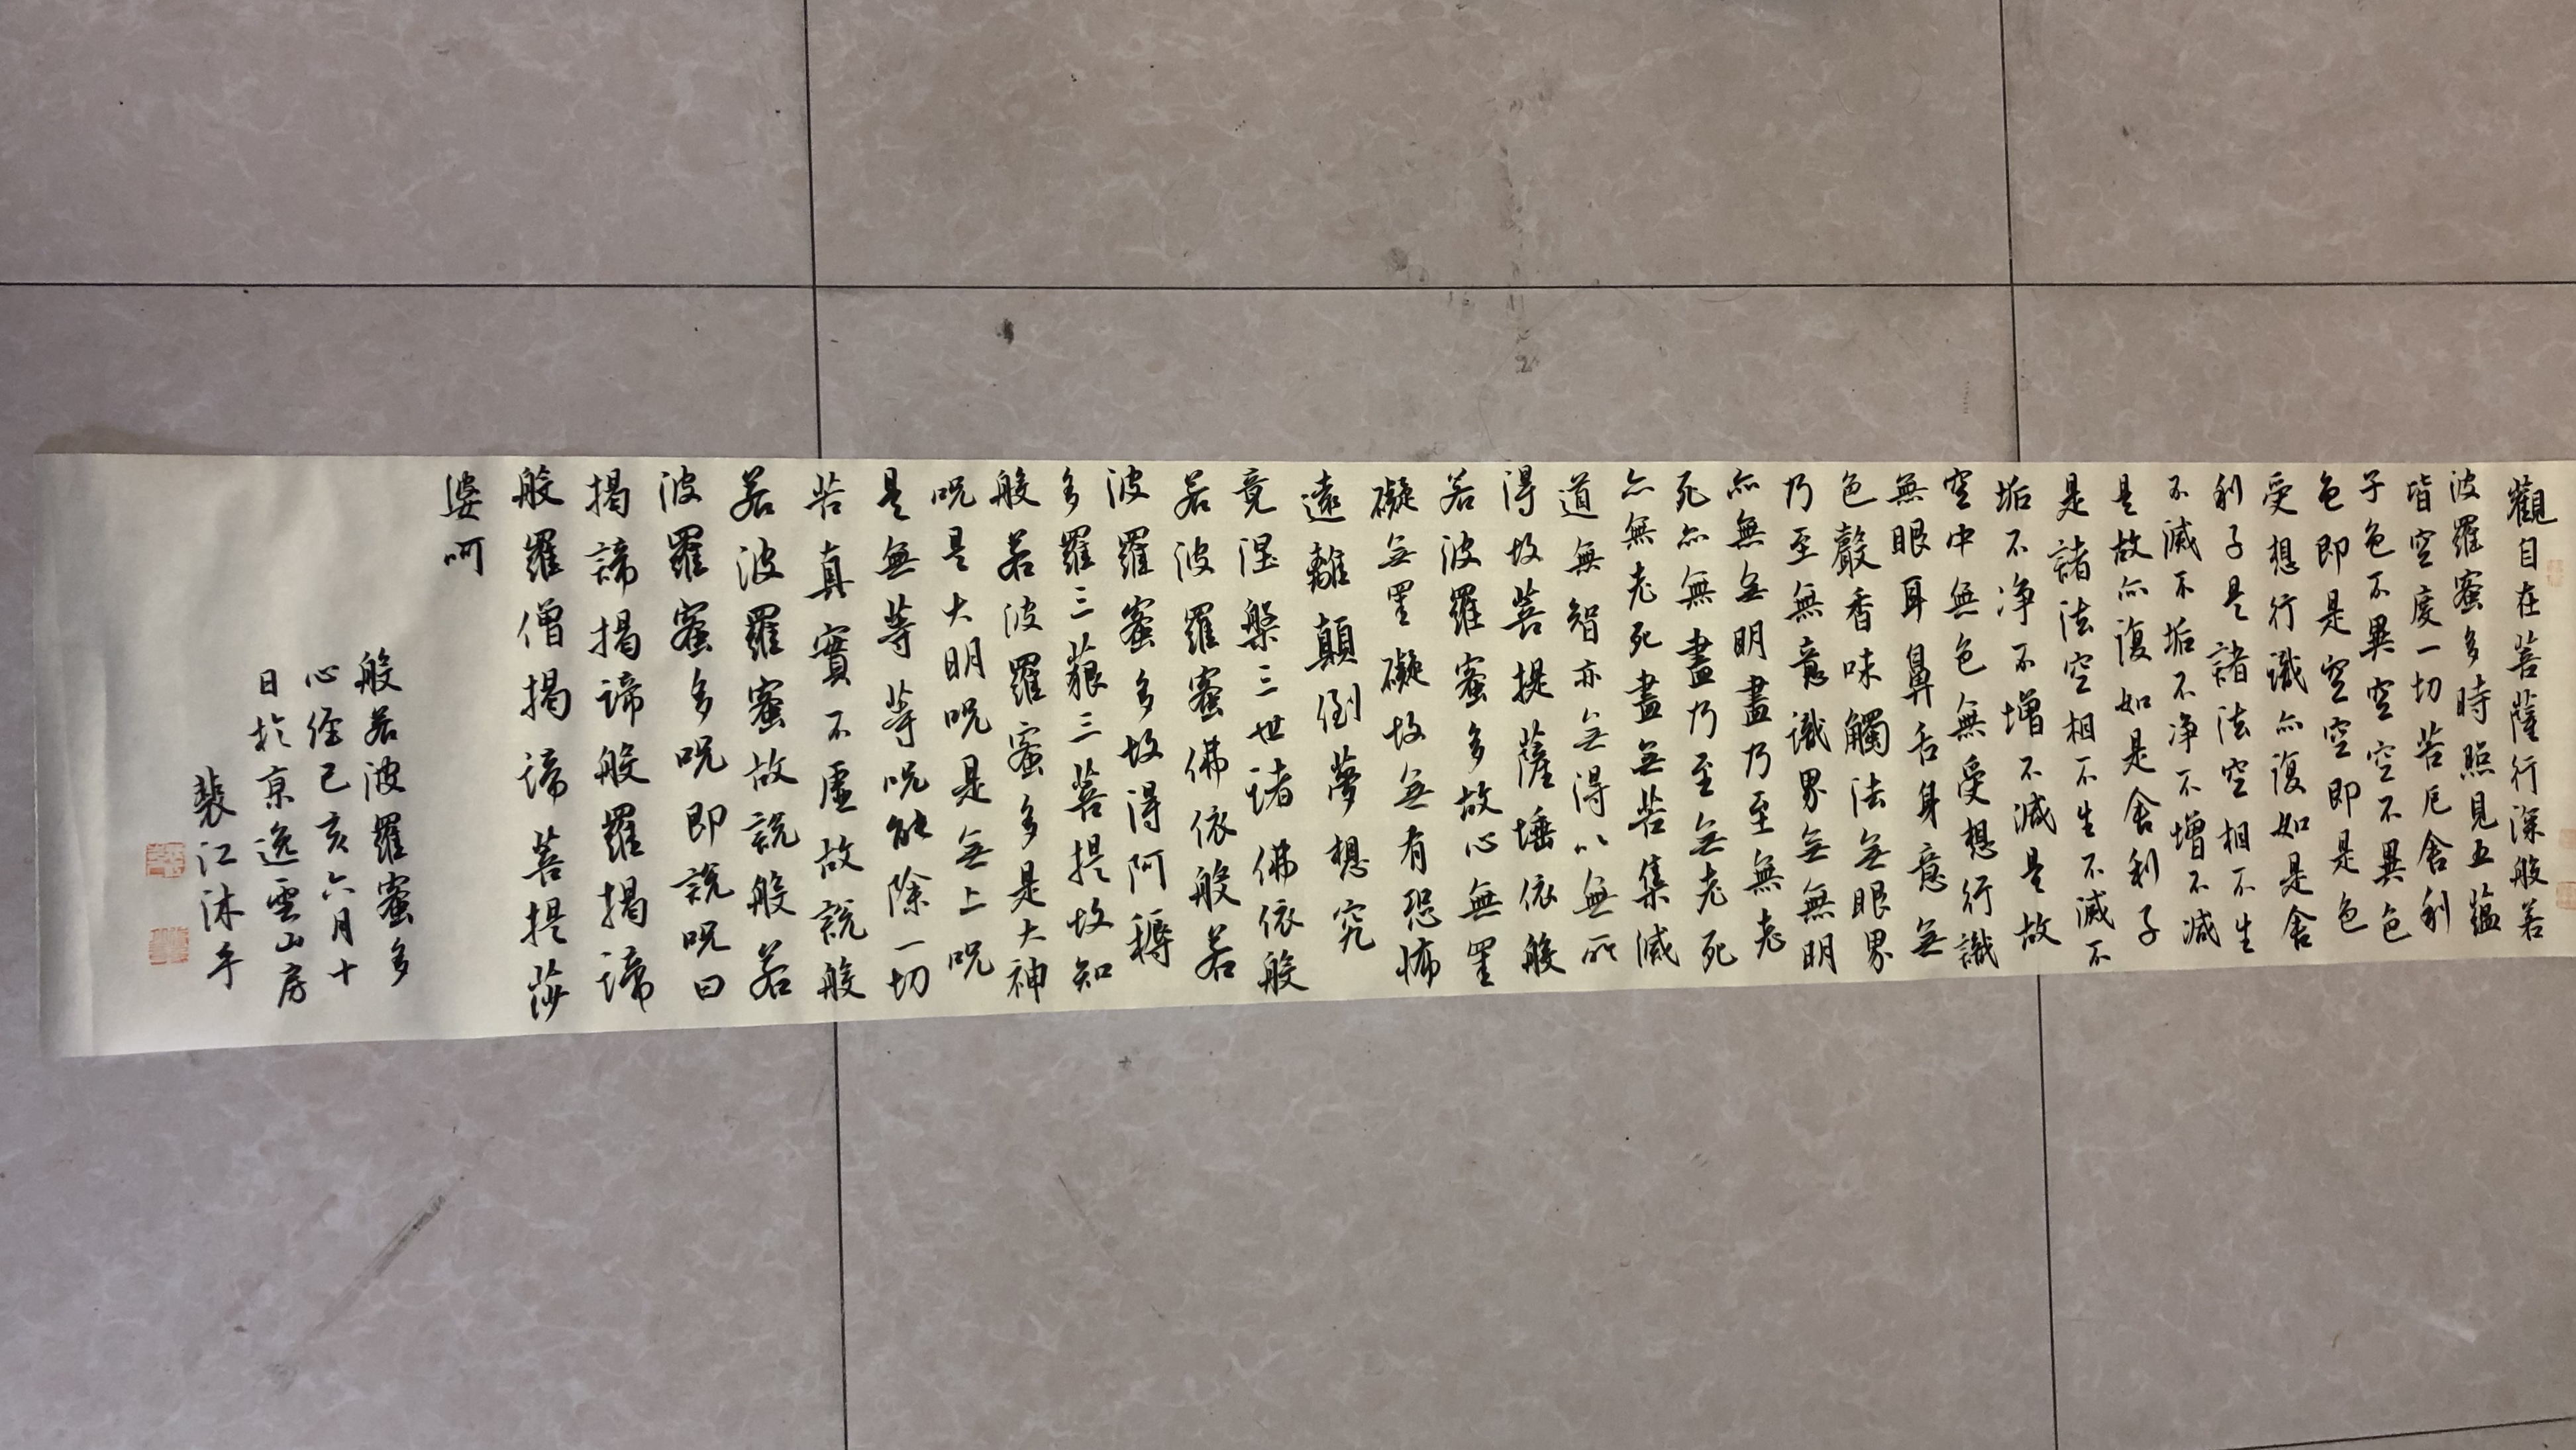 觀自在菩薩行深般若
波羅蜜多時照見五蘊
皆空空度一切苦厄舍利
子色不異空空不異色
色即是空空即是色
受想行識亦復如是舍
利子是諸法空相不生
不滅不垢不净不增不減
是故亦復如是舍利子
是諸法空相不生不滅不
垢不净不增不減是故
空中無色無受想行識
無眼耳鼻舌身意無
色聲香味觸法無眼界
乃至無意識界無無明
亦無無明盡乃至無老
死亦無盡乃至無老死
亦無老死盡無苦集滅
道無智亦無得以無所
得故菩提薩埵依般
若波羅蜜多故心無罣
礙無罣礙故無有恐怖
遠離顛倒夢想究
竟涅槃三世諸佛依般
若波羅蜜佛依般若
波羅蜜多故得阿耨
多羅三藐三菩提故知
般若波羅蜜多是大神
呪是大明呪是無上呪
是無等等呪能除一切
苦真實不虛故說般
若波羅蜜故說般若
波羅蜜多呪即說呪曰
揭諦揭諦般羅揭諦
般羅僧揭諦菩提莎
婆呵
般若波羅蜜多
心經己亥六月十
日於京逸雲山房
裴江沐手